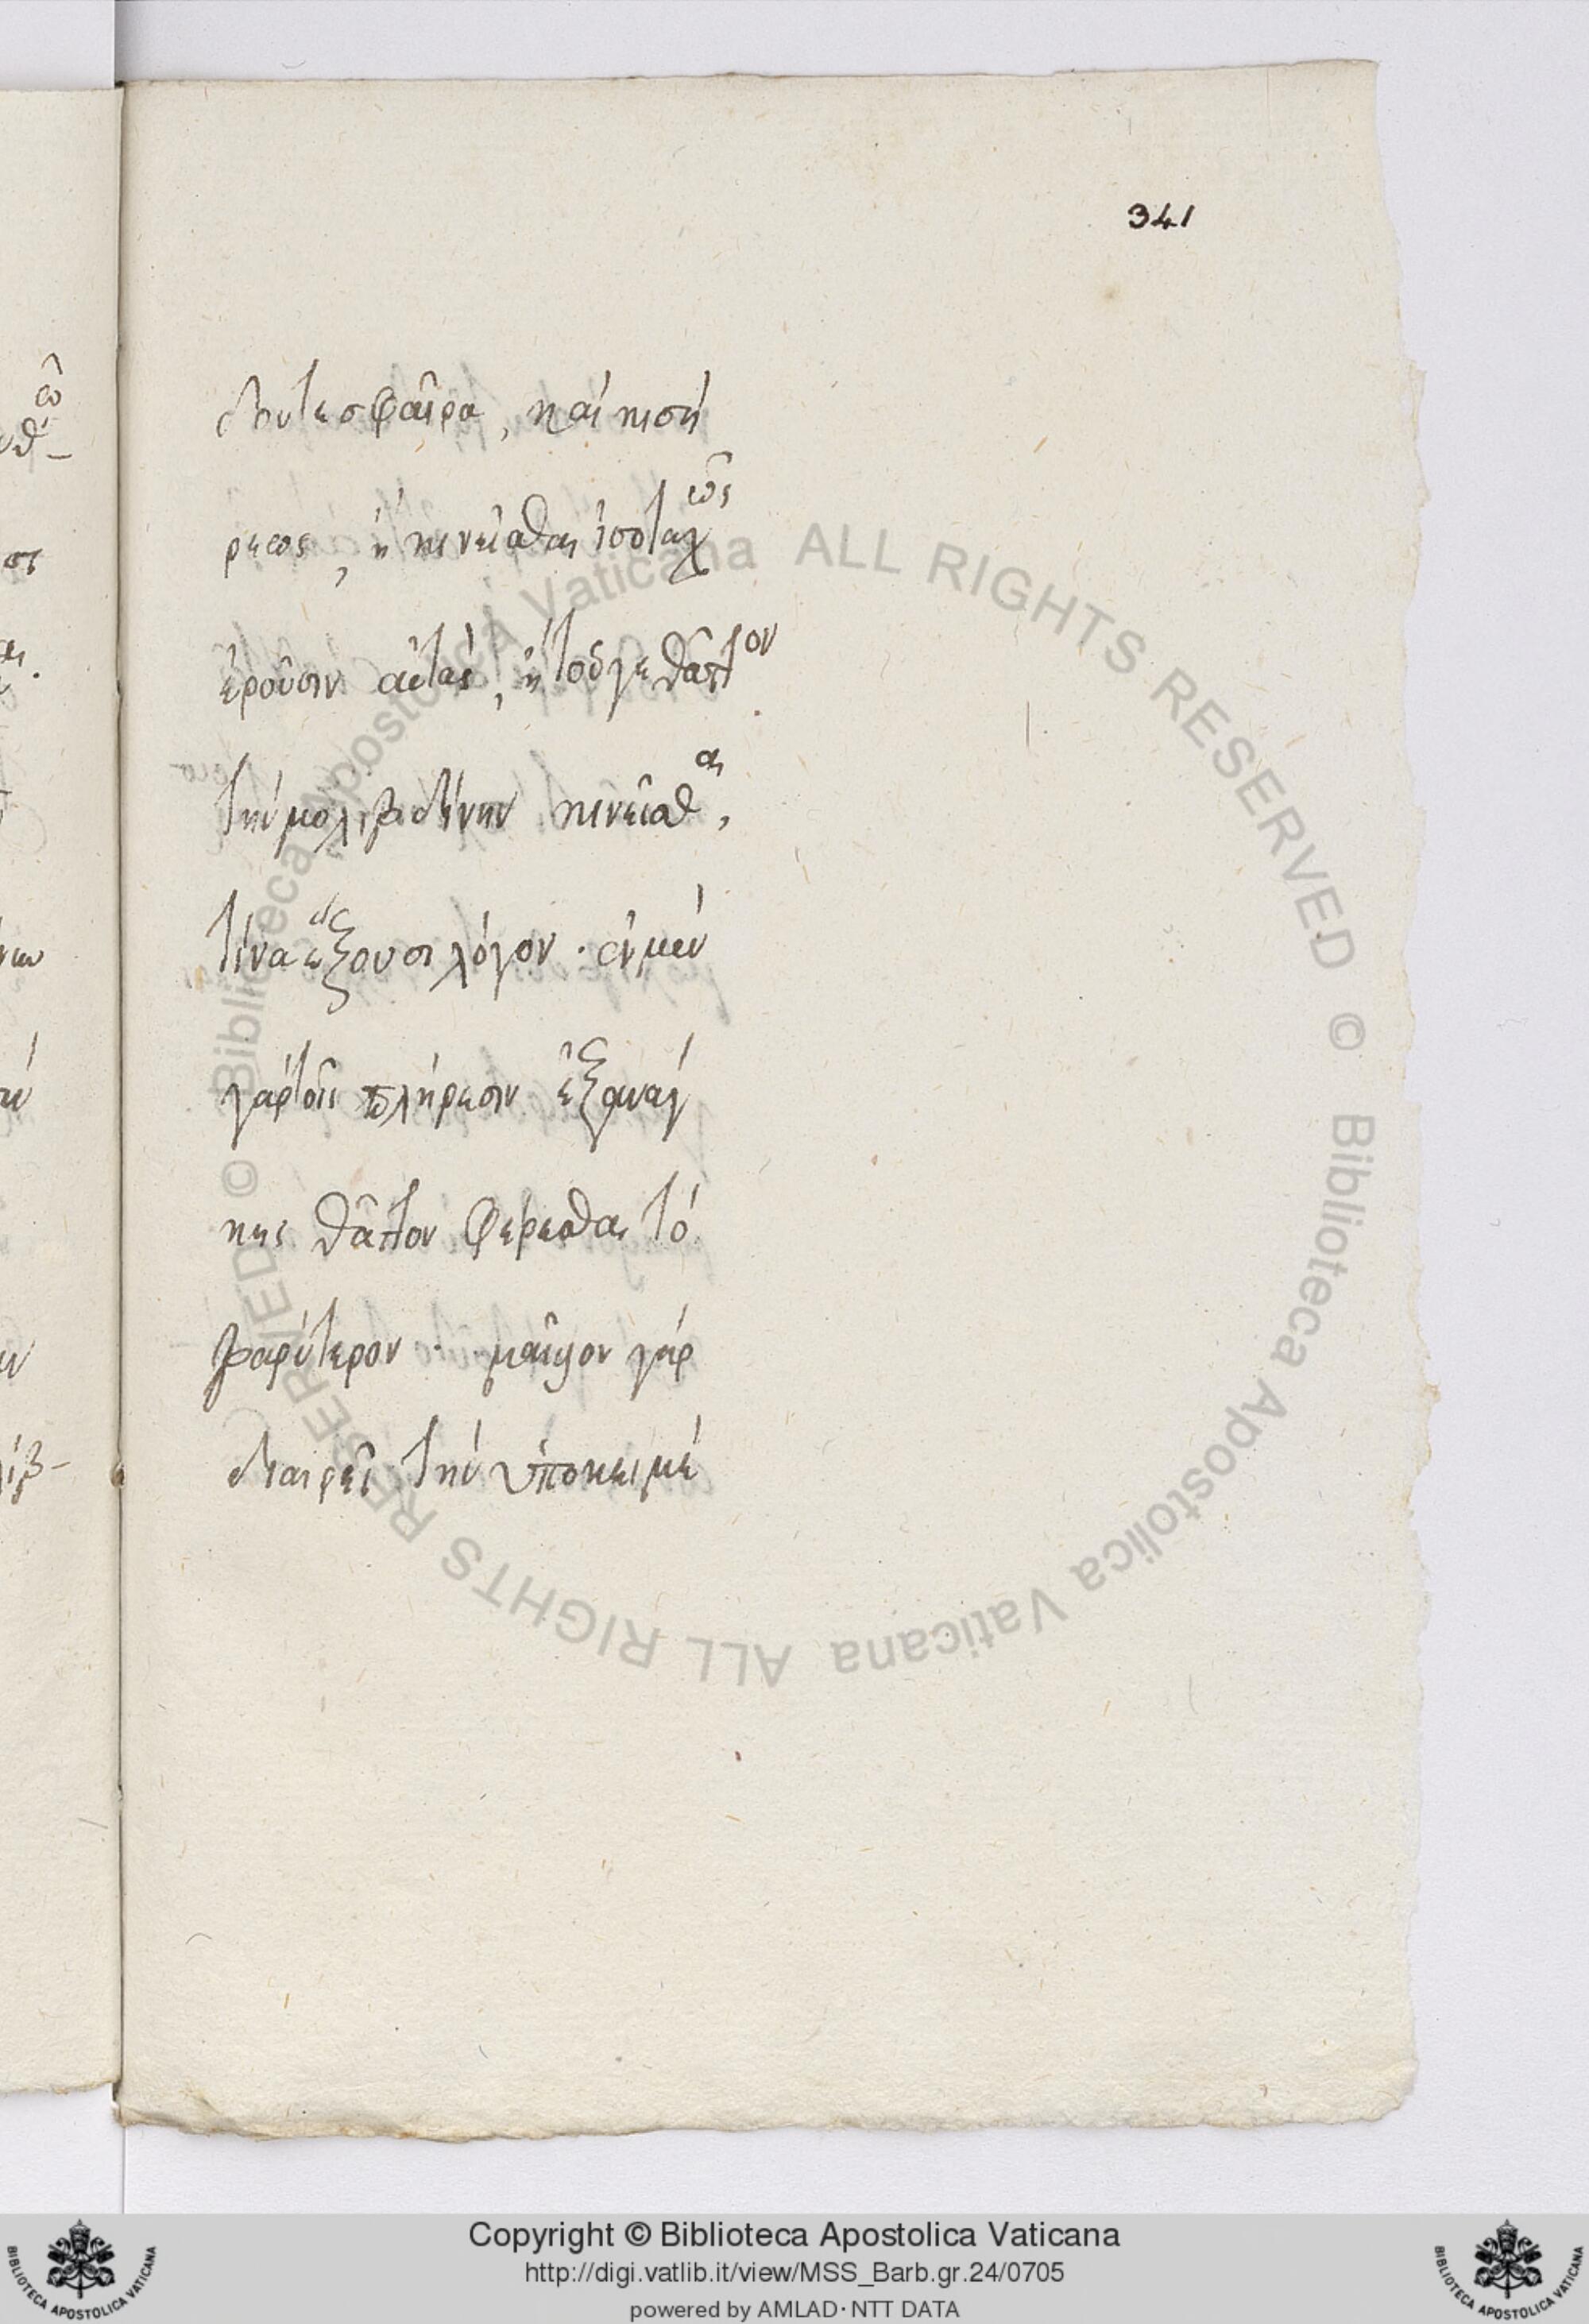 341
δύυτε σφαῖρα, καὶ κισή
ρεως, ἢ κινεῖσθαι ἰσοταχῶς
ἐροῦσιν αὐτὰς, ἢ τό γε θᾶττον
τὴν μολιβδίνην κινεῖσθαι,
τίνα ἕξουσι λόγον. ἐν μὲν
γὰρ τοῖς πλήρεσιν ἐξ ἀνάγ
κης θᾶττον φέρεσθαι τὸ
βαρύτερον. μᾶλλον γὰρ
διαιρεῖ τὴν ὑποκειμέ
Copyright © Biblioteca Apostolica Vaticana
http://digi.vatlib.it/view/MSS_Barb.gr.24/0705
powered by AMLAD·NTT DATA
© Biblioteca Apostolica Vaticana ALL RIGHTS RESERVED © Biblioteca Apostolica Vaticana ALL RIGHTS RESERVED
BIBLIOTECA APOSTOLICA VATICANA
BIBLIOTECA APOSTOLICA VATICANA